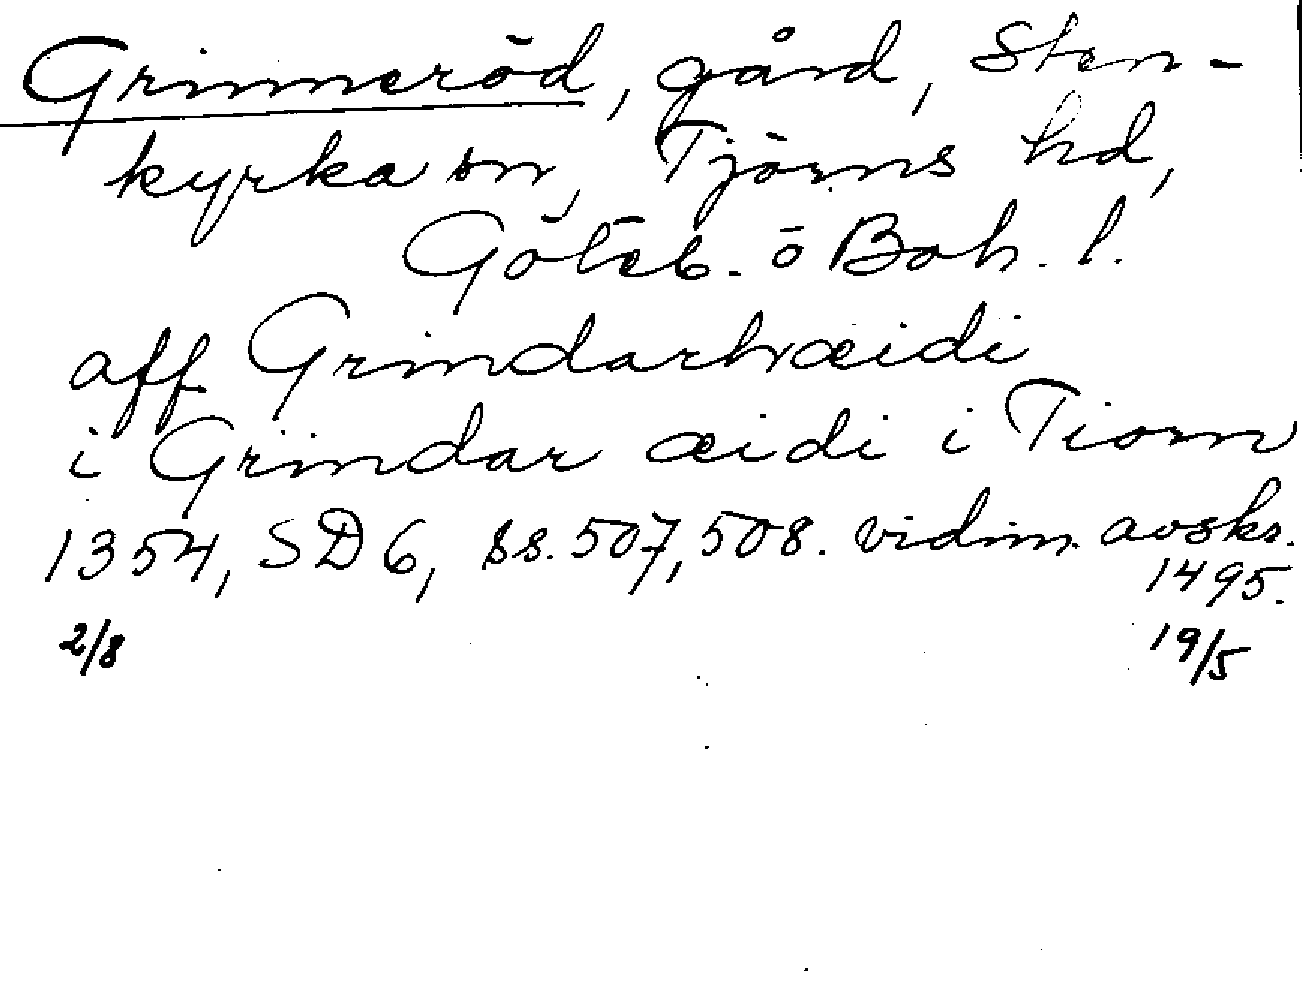 Grinneröd, gård, Sten-
kyrka sn, Tjörns hd,
Göteb. o Boh. l.
aff Grindarhæidi
i Grindar æidi i Tiorn
1354, SD 6, ss. 507, 508. vidim. avskr.
1495.
2/8 19/5